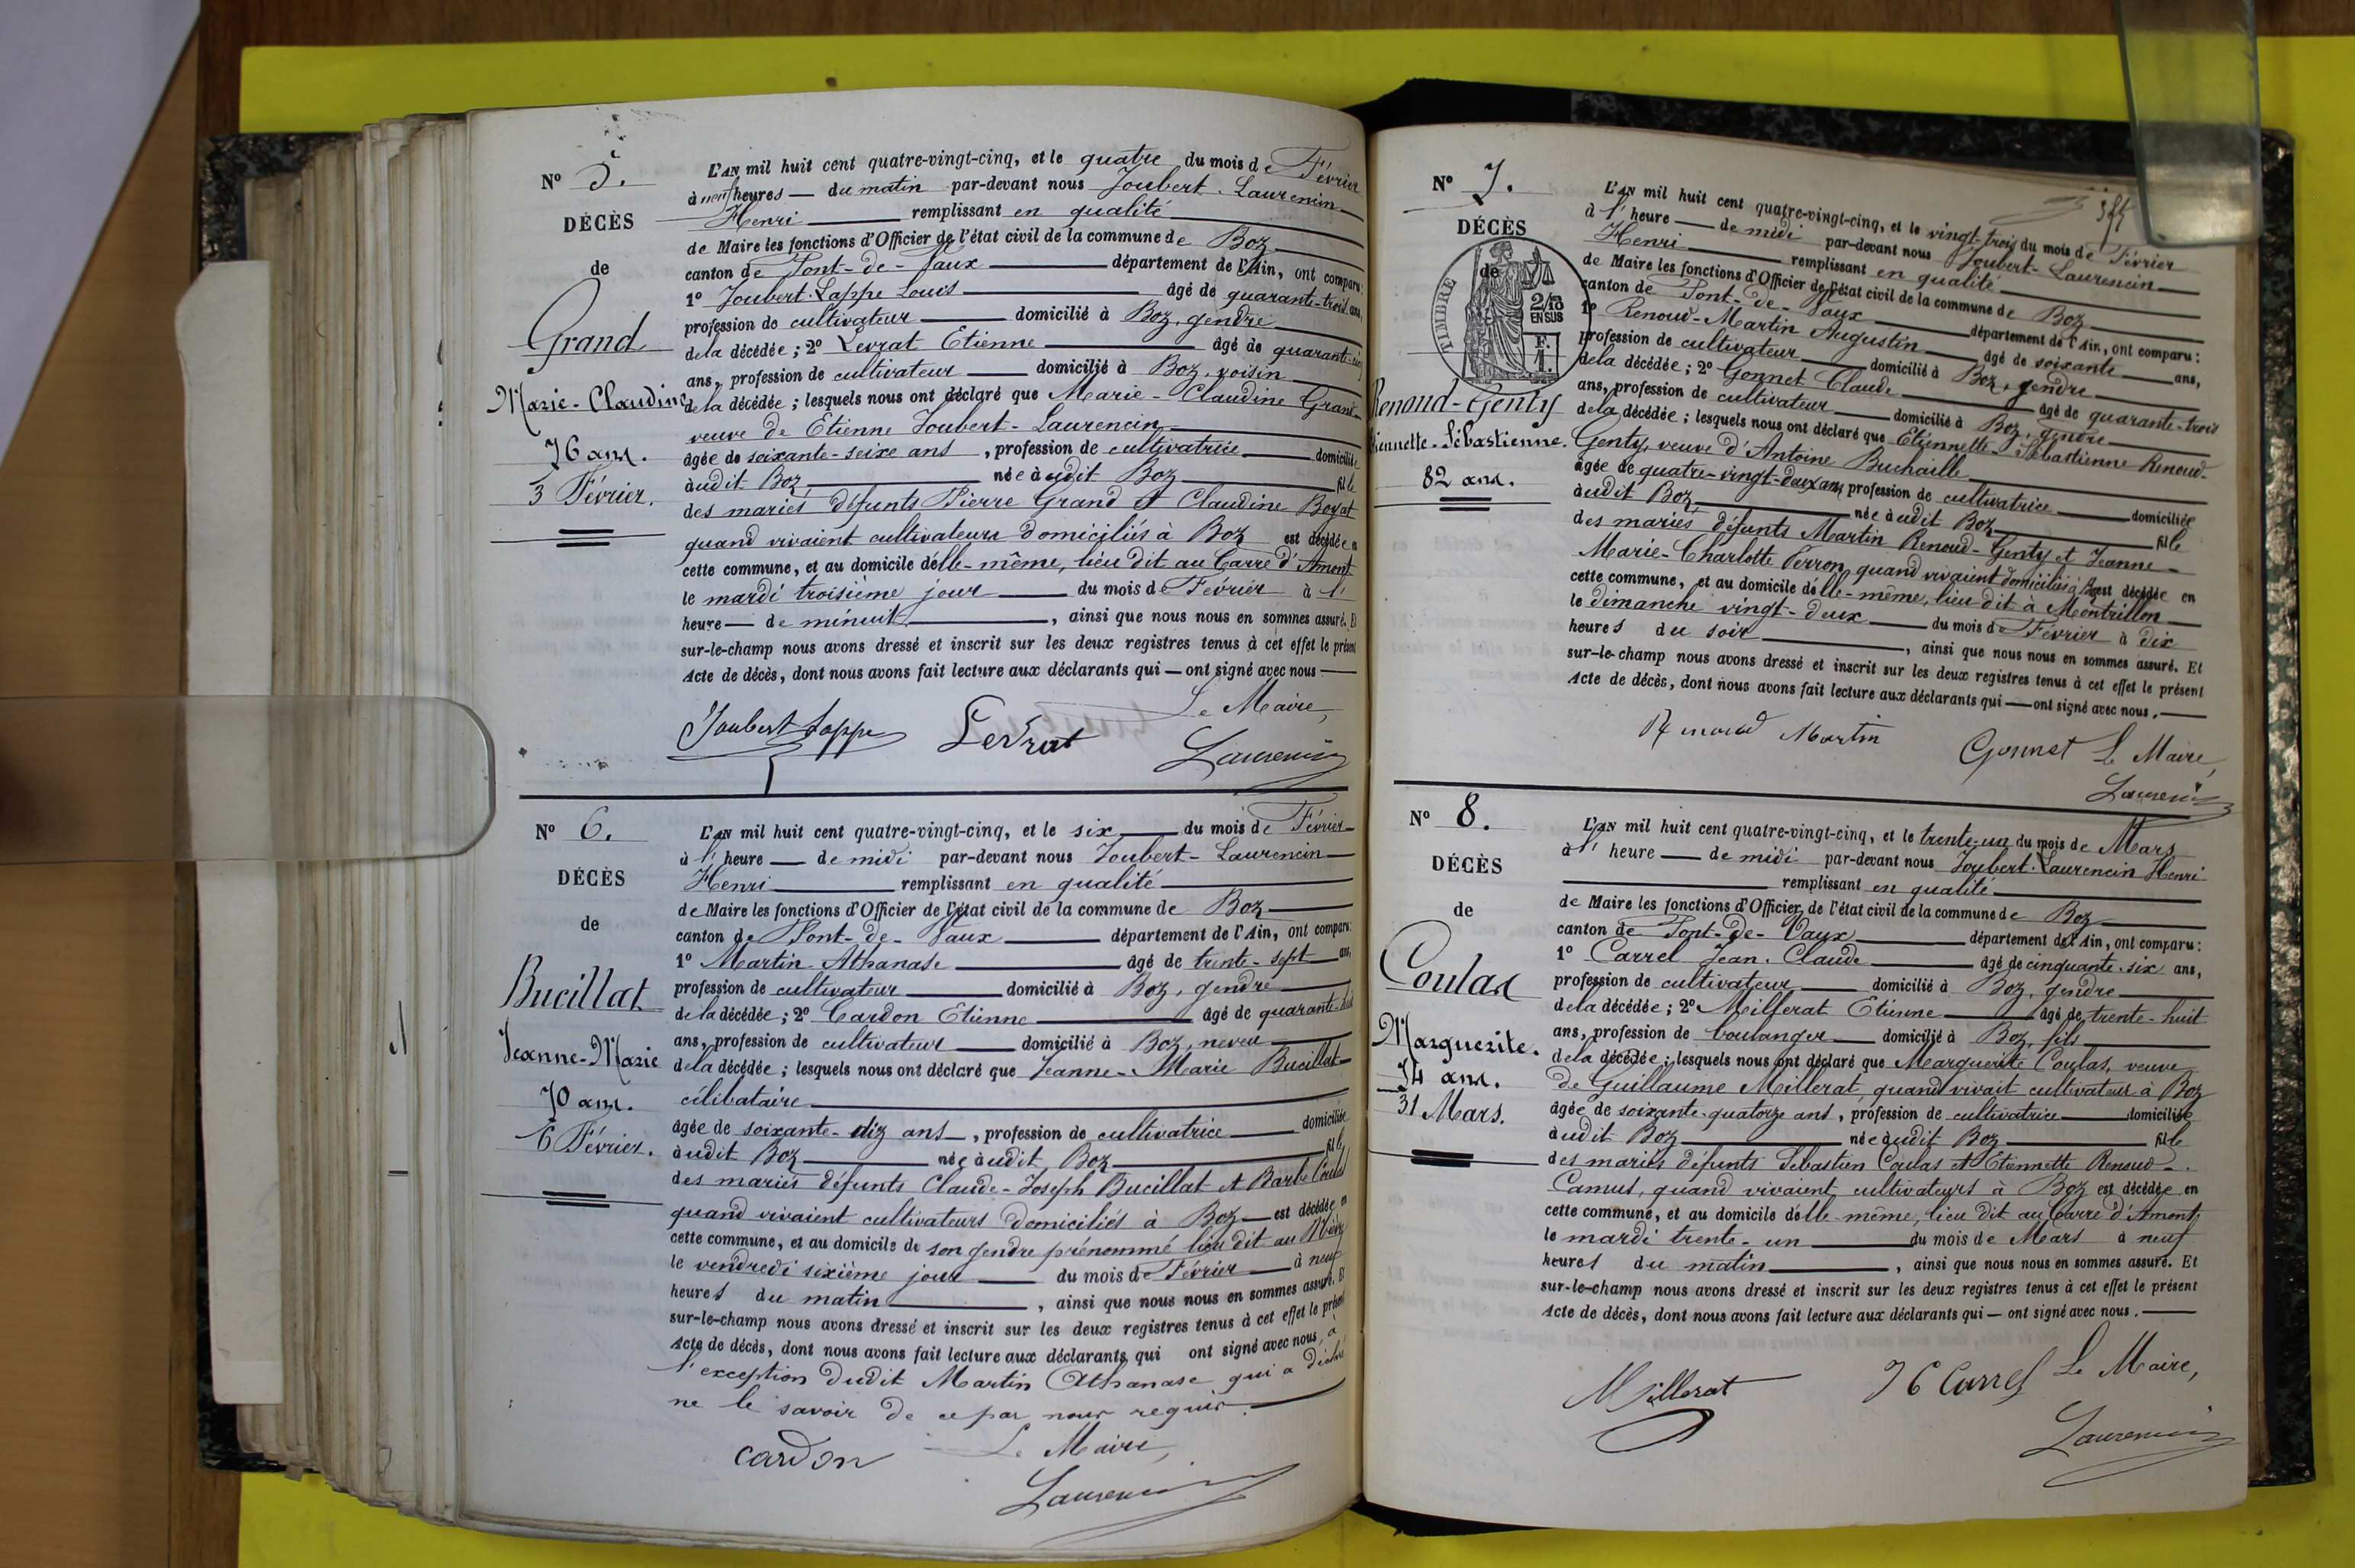 N° 5.
DÉCÈS
de
Grand
Marie-Claudine
76 ans.
3 Février.
L'AN mil huit cent quatre-vingt-cinq, et le quatre du mois de Février
à neuf heures — du matin par-devant nous Joubert-Laurencin
Henri remplissant en qualité
de Maire les fonctions d'Officier de l'état civil de la commune de Boz
canton de Pont-de-Vaux département de l'Ain, ont comparu:
1° Joubert-Lappe Louis âgé de quarante-trois ans,
profession de cultivateur domicilié à Boz, gendre
de la décédée; 2° Levrat Etienne âgé de quarante-
ans, profession de cultivateur domicilié à Boz, voisin
de la décédée; lesquels nous ont déclaré que Marie-Claudine Grand
veuve de Etienne Joubert-Laurencin
âgée de soixante-seize ans, profession de cultivatrice domiciliée
audit Boz née audit Boz fille
des mariés défunts Pierre Grand et Claudine Boyat
quand vivaient cultivateurs domiciliés à Boz est décédée en
cette commune, et au domicile d'elle-même, lieu dit au Carre d'Amont
le mardi troisième jour du mois de Février à l'
heure — de minuit, ainsi que nous nous en sommes assuré. Et
sur-le-champ nous avons dressé et inscrit sur les deux registres tenus à cet effet le présent
Acte de décès, dont nous avons fait lecture aux déclarants qui — ont signé avec nous
Le Maire,
Joubert Lappe Levrat Laurencin
N° 6.
DÉCÈS
de
Bucillat
Jeanne-Marie
70 ans.
6 Février.
L'AN mil huit cent quatre-vingt-cinq, et le six du mois de Février
à l' heure — de midi par-devant nous Joubert-Laurencin
Henri remplissant en qualité
de Maire les fonctions d'Officier de l'état civil de la commune de Boz
canton de Pont-de-Vaux département de l'Ain, ont comparu:
1° Martin Athanase âgé de trente-sept ans,
profession de cultivateur domicilié à Boz, gendre
de la décédée; 2° Cardon Etienne âgé de quarante-
ans, profession de cultivateur domicilié à Boz, neveu
de la décédée; lesquels nous ont déclaré que Jeanne-Marie Bucillat
célibataire
âgée de soixante-dix ans, profession de cultivatrice domiciliée
audit Boz née audit Boz fille
des mariés défunts Claude-Joseph Bucillat et Barbe Coulas
quand vivaient cultivateurs domiciliés à Boz est décédée en
cette commune, et au domicile de son gendre prénommé lieu dit au
le vendredi sixième jour du mois de Février à neuf
heures du matin, ainsi que nous nous en sommes assuré. Et
sur-le-champ nous avons dressé et inscrit sur les deux registres tenus à cet effet le présent
Acte de décès, dont nous avons fait lecture aux déclarants qui ont signé avec nous, à
l'exception dudit Martin Athanase qui a déclaré
ne le savoir de ce par nous requis.
cardon Le Maire,
Laurencin
N° 7.
DÉCÈS
de
TIMBRE
2/10
EN SUS
F.
1.
Renoud-Genty
Etiennette-Sébastienne.
82 ans.
L'AN mil huit cent quatre-vingt-cinq, et le vingt-trois du mois de Février
à l' heure — de midi par-devant nous Joubert-Laurencin
Henri remplissant en qualité
de Maire les fonctions d'Officier de l'état civil de la commune de Boz
canton de Pont-de-Vaux département de l'Ain, ont comparu:
1° Renoud-Martin Augustin âgé de soixante ans,
profession de cultivateur domicilié à Boz, gendre
de la décédée; 2° Gonnet Claude âgé de quarante-trois
ans, profession de cultivateur domicilié à Boz, gendre
de la décédée; lesquels nous ont déclaré que Etiennette-Sébastienne Renoud-
Genty, veuve d'Antoine Buchaille
âgée de quatre-vingt-deux ans, profession de cultivatrice domiciliée
audit Boz, née audit Boz fille
des mariés défunts Martin Renoud-Genty et Jeanne-
Marie-Charlotte Perron, quand vivaient domiciliés à Boz est décédée en
cette commune, et au domicile d'elle-même, lieu dit à Montrillon
le dimanche vingt-deux du mois de Février à dix
heures du soir, ainsi que nous nous en sommes assuré. Et
sur-le-champ nous avons dressé et inscrit sur les deux registres tenus à cet effet le présent
Acte de décès, dont nous avons fait lecture aux déclarants qui — ont signé avec nous.
Renoud Martin Gonnet Le Maire,
Laurencin
N° 8.
DÉCÈS
de
Coulas
Marguerite.
74 ans.
31 Mars.
L'AN mil huit cent quatre-vingt-cinq, et le trente-un du mois de Mars
à l' heure — de midi par-devant nous Joubert-Laurencin Henri
remplissant en qualité
de Maire les fonctions d'Officier de l'état civil de la commune de Boz
canton de Pont-de-Vaux département de l'Ain, ont comparu:
1° Carrel Jean-Claude âgé de cinquante-six ans,
profession de cultivateur domicilié à Boz, gendre
de la décédée; 2° Millerat Etienne âgé de trente-huit
ans, profession de boulanger domicilié à Boz, fils
de la décédée; lesquels nous ont déclaré que Marguerite Coulas, veuve
de Guillaume Millerat, quand vivait cultivateur à Boz
âgée de soixante-quatorze ans, profession de cultivatrice domiciliée
audit Boz née audit Boz fille
des mariés défunts Sébastien Coulas et Etiennette Renoud-
Camus, quand vivaient cultivateurs à Boz est décédée en
cette commune, et au domicile d'elle-même, lieu dit au Carre d'Amont,
le mardi trente-un du mois de Mars à neuf
heures du matin, ainsi que nous nous en sommes assuré. Et
sur-le-champ nous avons dressé et inscrit sur les deux registres tenus à cet effet le présent
Acte de décès, dont nous avons fait lecture aux déclarants qui — ont signé avec nous.
Millerat JC Carrel Le Maire,
Laurencin